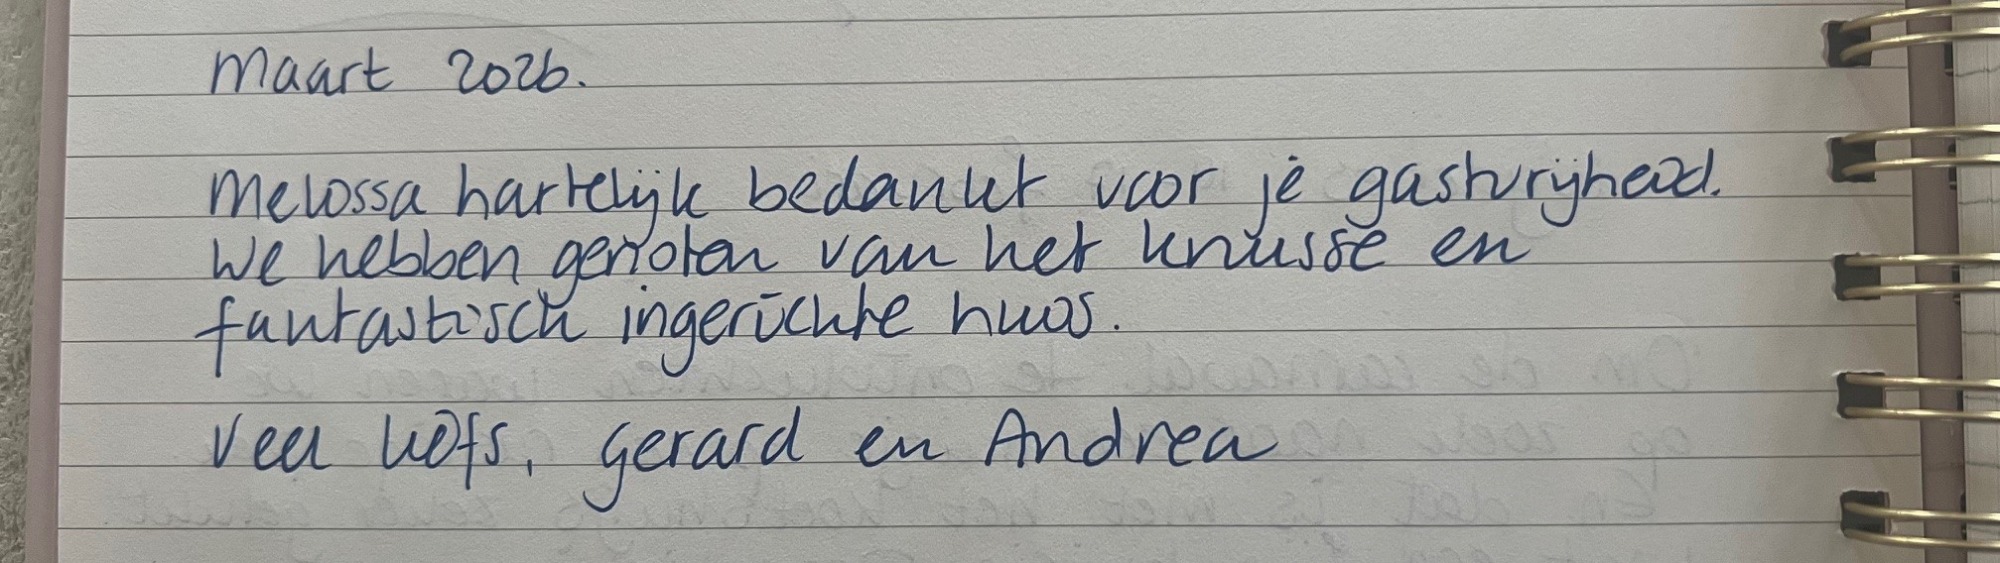 maart 2026.
Melossa hartelijk bedankt voor je gastvrijheid.
We hebben genoten van het knusse en
fantastisch ingerichte huis.
Veel liefs, Gerard en Andrea